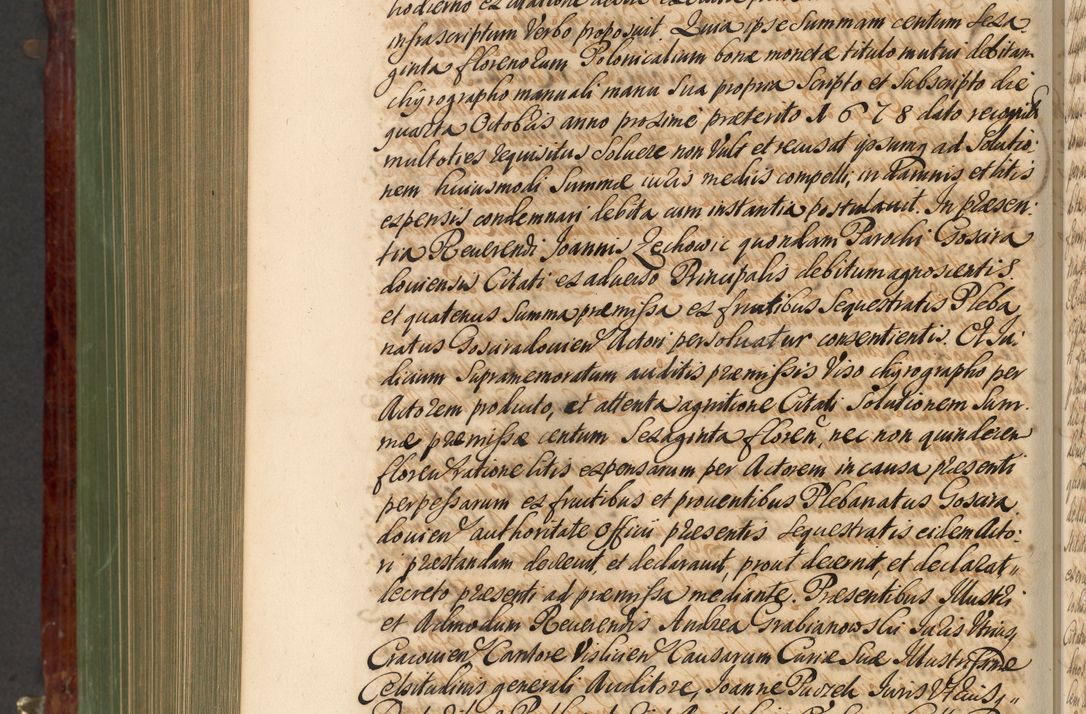 infrascriptum Verbo proposuit. Quia ipse Summam centum sexa
ginta florenorum Polonicalium bonæ monetæ titulo mutui debitam
chyrographo manuali manu sua propria Scripto et Subscripto die
quarta Octobris anno proxime præterito 1678 dato
multoties requisitus Soluere non Vult et recusat ipsumq ad Solutio:
nem huiusmodi Summæ iuris mediis compelli, in damnis et litis
expensis condemnari debita cum instantia postulauit. In præsen:
tia Reuerendi Joannis Zechowic quondam Parochi Goszra
douiensis Citati ex aduerso Principalis debitum agnoscentis
et quatenus Summa præmissa ex fructibus Sequestratis Pleba
natus Actori persoluatur consentientis. Et Ju:
dicium Supramemoratum auditis præmissis Viso chyrographo per
Actorem producto, et attenta agnitione Citati Solutionem Sum:
mæ præmissæ centum Sexaginta floren, nec non quindecem
floren ratione litis expensarum per Actorem in causa præsenti
perpessarum ex fructibus et prouentibus Plebanatus
douien authoritate Officii præsentis Sequestratis eidem Acto:
ri præstandam decreuit, et declarauit, prout decernit, et declarat,,
decreto præsenti ad præmissa mediante. Præsentibus Illustri
et Admodum Reuerendis Andrea Grabianowski Juris Vtriusq
Cracouien Cantore Vislicien Causarum Curiæ Suæ Illustrissimæ
Celsitudinis generali Auditore, Joanne Paczek Juris Vtriusq,,